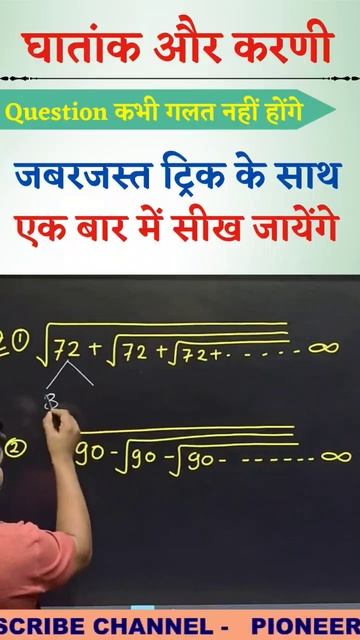 घातांक और करणी
Question कभी गलत नहीं होंगे
जबरजस्त ट्रिक के साथ
एक बार में सीख जायेंगे
① √72 + √72 + √72+ - - - - - ∞
8
② 90 - √90 - √90 - - - - - - - - ∞
SCRIBE CHANNEL - PIONEER